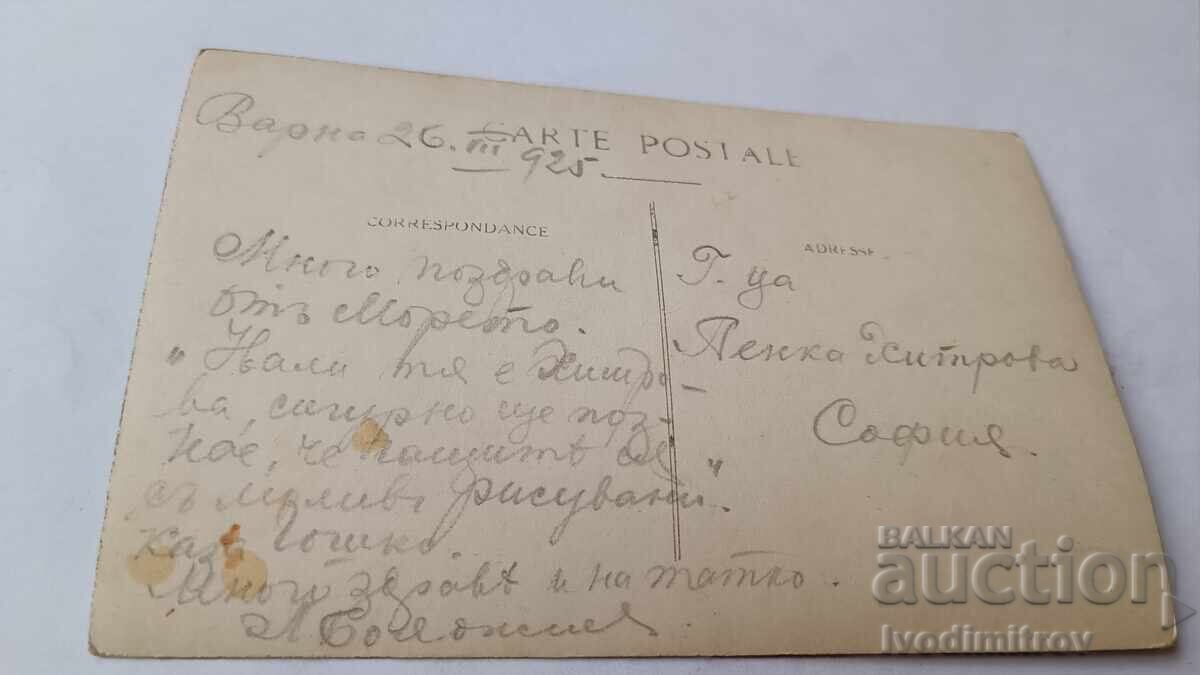 Варна 26. III 925.
CARTE POSTALE
CORRESPONDANCE
Много поздрави
отъ Морето.
„Нали тя е Хитро-
ва, сигурно ще поз-
нае, че гащитѣ са
съ моливъ рисувани“
каза Гошко.
Много здраве и на татко.
ADRESSE
Г-ца
Пенка Хитрова
София
BALKAN
auction
Ivodimitrov